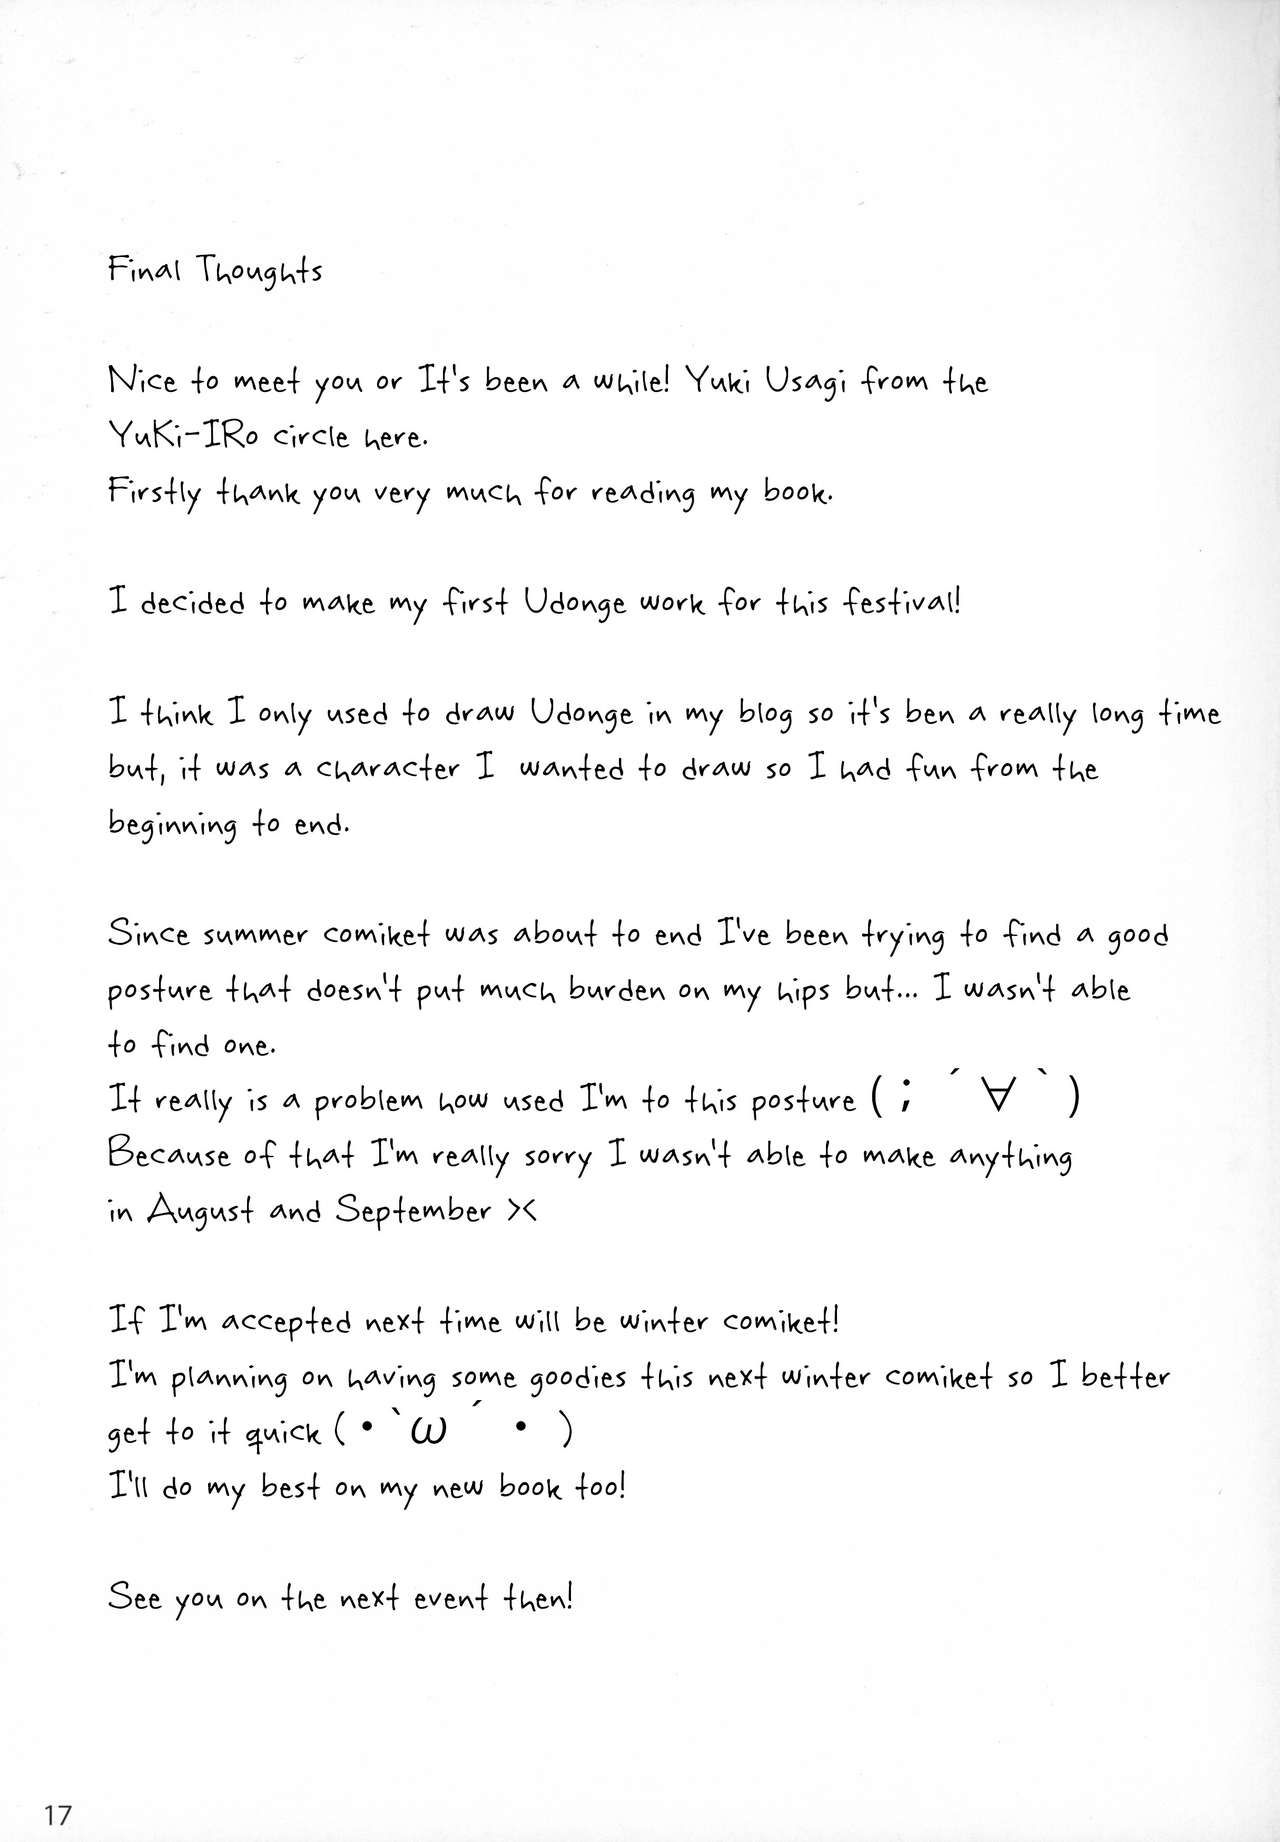 Final Thoughts
Nice to meet you or It's been a while! Yuki Usagi from the
YuKi-IRo circle here.
Firstly thank you very much for reading my book.
I decided to make my first Udonge work for this festival!
I think I only used to draw Udonge in my blog so it's ben a really long time
but, it was a character I wanted to draw so I had fun from the
beginning to end.
Since summer comiket was about to end I've been trying to find a good
posture that doesn't put much burden on my hips but... I wasn't able
to find one.
It really is a problem how used I'm to this posture (; ´ ∀ `)
Because of that I'm really sorry I wasn't able to make anything
in August and September ><
If I'm accepted next time will be winter comiket!
I'm planning on having some goodies this next winter comiket so I better
get to it quick (・`ω´・)
I'll do my best on my new book too!
See you on the next event then!
17